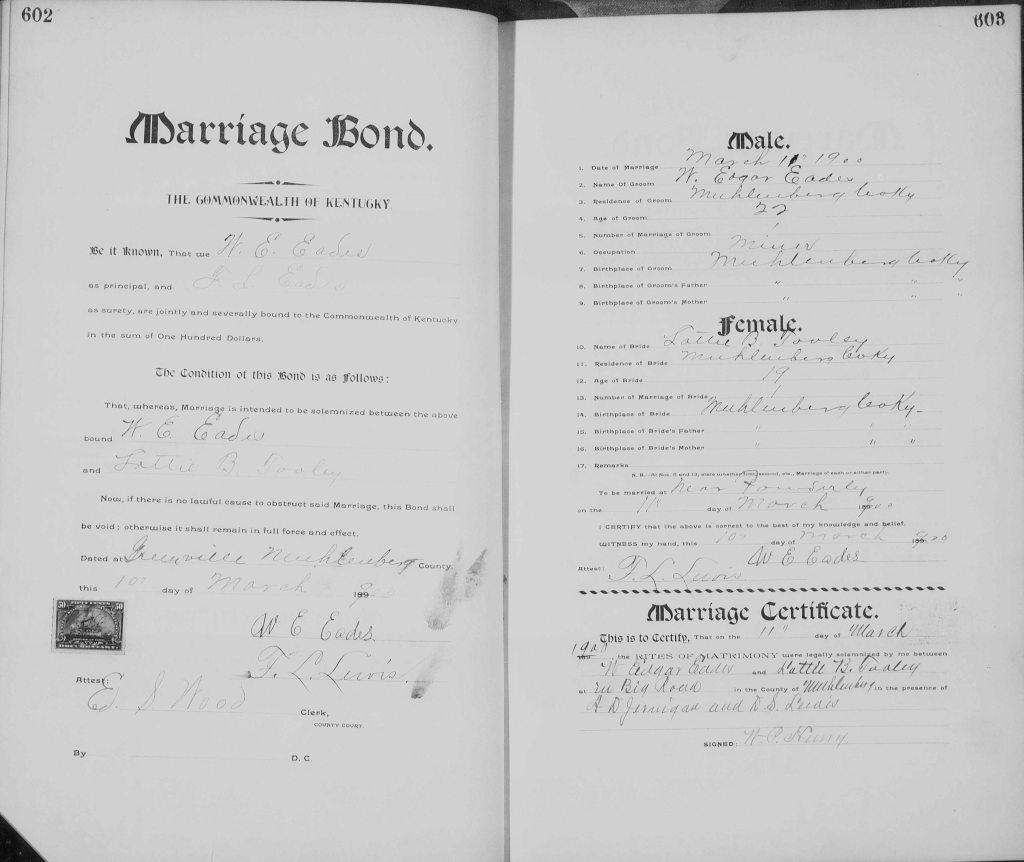 602
Marriage Bond.
THE COMMONWEALTH OF KENTUCKY
Be it Known, That we W. E. Eades
as principal, and Eades
as surety, are jointly and severally bound to the Commonwealth of Kentucky
in the sum of One Hundred Dollars.
The Condition of this Bond is as Follows:
That, whereas, Marriage is intended to be solemnized between the above
bound W. E. Eades
and Lottie B. Tooley
Now, if there is no lawful cause to obstruct said Marriage, this Bond shall
be void; otherwise it shall remain in full force and effect.
Dated at Greenville Muhlenberg County,
this 10" day of March 1900
W E Eades
F. L. Lewis.
Attest:
Ed. S Wood Clerk,
COUNTY COURT.
By D. C.
50 FIFTY CENTS 50
DOCUMENTARY
603
Male.
1. Date of Marriage March 11" 1900
2. Name Of Groom W. Edgar Eades
3. Residence of Groom Muhlenberg Co Ky
4. Age of Groom 22
5. Number of Marriage of Groom 1
6. Occupation Miner
7. Birthplace of Groom Muhlenberg Co Ky
8. Birthplace of Groom's Father " " "
9. Birthplace of Groom's Mother " " "
Female.
10. Name of Bride Lottie B Tooley
11. Residence of Bride Muhlenberg Co Ky
12. Age of Bride 19
13. Number of Marriage of Bride 1
14. Birthplace of Bride Muhlenberg Co Ky-
15. Birthplace of Bride's Father " " "
16. Birthplace of Bride's Mother " " "
17. Remarks
N. B.—At Nos. 5 and 13, state whether first, second, etc., Marriage of each or either party.
To be married at Near Powderly
on the 11" day of March 1900
I CERTIFY that the above is correct to the best of my knowledge and belief.
WITNESS my hand, this 10" day of March 1900
Attest: W E Eades
F. L. Lewis
Marriage Certificate.
This is to Certify, That on the 11" day of March
1900 the RITES OF MATRIMONY were legally solemnized by me between
W Edgar Eades and Lottie B. Tooley
at in Big Road in the County of Muhlenberg in the presence of
A D Jernigan and D. S. Lewis
SIGNED: W. P. Henry.